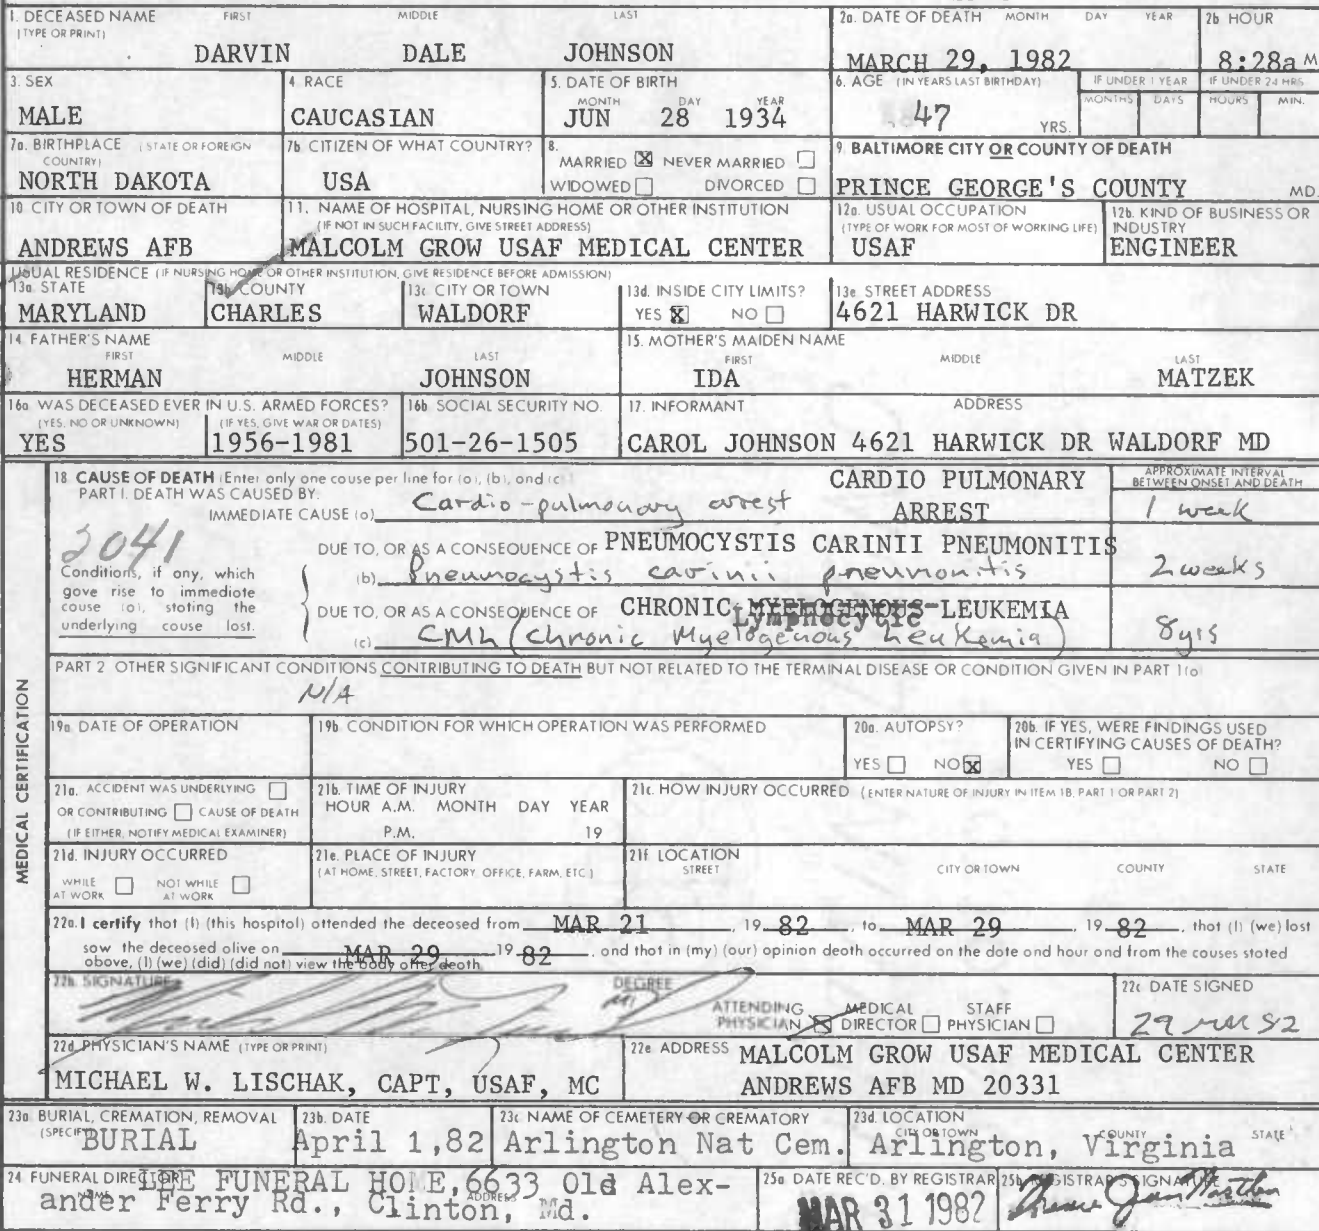 1. DECEASED NAME FIRST MIDDLE LAST
(TYPE OR PRINT)
DARVIN DALE JOHNSON
2a. DATE OF DEATH MONTH DAY YEAR
MARCH 29, 1982
2b HOUR
8:28a M
3. SEX
MALE
4. RACE
CAUCASIAN
5. DATE OF BIRTH
MONTH DAY YEAR
JUN 28 1934
6. AGE (IN YEARS LAST BIRTHDAY)
47 YRS.
IF UNDER 1 YEAR
MONTHS DAYS
IF UNDER 24 HRS.
HOURS MIN.
7a. BIRTHPLACE (STATE OR FOREIGN
COUNTRY)
NORTH DAKOTA
7b CITIZEN OF WHAT COUNTRY?
USA
8.
MARRIED X NEVER MARRIED
WIDOWED DIVORCED
9. BALTIMORE CITY OR COUNTY OF DEATH
PRINCE GEORGE'S COUNTY MD.
10 CITY OR TOWN OF DEATH
ANDREWS AFB
11. NAME OF HOSPITAL, NURSING HOME OR OTHER INSTITUTION
(IF NOT IN SUCH FACILITY, GIVE STREET ADDRESS)
MALCOLM GROW USAF MEDICAL CENTER
12a. USUAL OCCUPATION
(TYPE OF WORK FOR MOST OF WORKING LIFE)
USAF
12b. KIND OF BUSINESS OR
INDUSTRY
ENGINEER
USUAL RESIDENCE (IF NURSING HOME OR OTHER INSTITUTION, GIVE RESIDENCE BEFORE ADMISSION)
13a. STATE
MARYLAND
13b. COUNTY
CHARLES
13c. CITY OR TOWN
WALDORF
13d. INSIDE CITY LIMITS?
YES X NO
13e STREET ADDRESS
4621 HARWICK DR
14. FATHER'S NAME
FIRST MIDDLE LAST
HERMAN JOHNSON
15. MOTHER'S MAIDEN NAME
FIRST MIDDLE LAST
IDA MATZEK
16a WAS DECEASED EVER IN U.S. ARMED FORCES?
(YES, NO OR UNKNOWN) (IF YES, GIVE WAR OR DATES)
YES 1956-1981
16b SOCIAL SECURITY NO.
501-26-1505
17. INFORMANT ADDRESS
CAROL JOHNSON 4621 HARWICK DR WALDORF MD
MEDICAL CERTIFICATION
18 CAUSE OF DEATH (Enter only one cause per line for (a), (b), and (c)
PART I. DEATH WAS CAUSED BY:
CARDIO PULMONARY
ARREST
APPROXIMATE INTERVAL
BETWEEN ONSET AND DEATH
IMMEDIATE CAUSE (a) Cardio-pulmonary arrest
1 week
2041
Conditions, if any, which
gave rise to immediate
cause (a), stating the
underlying cause last.
DUE TO, OR AS A CONSEQUENCE OF PNEUMOCYSTIS CARINII PNEUMONITIS
(b) Pneumocystis carinii pneumonitis
2 weeks
DUE TO, OR AS A CONSEQUENCE OF CHRONIC MYELOGENOUS LEUKEMIA
Lymphocytic
(c) CML (Chronic Myelogenous Leukemia)
8yrs
PART 2 OTHER SIGNIFICANT CONDITIONS CONTRIBUTING TO DEATH BUT NOT RELATED TO THE TERMINAL DISEASE OR CONDITION GIVEN IN PART 1(a)
N/A
19a. DATE OF OPERATION
19b CONDITION FOR WHICH OPERATION WAS PERFORMED
20a. AUTOPSY?
YES NO X
20b. IF YES, WERE FINDINGS USED
IN CERTIFYING CAUSES OF DEATH?
YES NO
21a. ACCIDENT WAS UNDERLYING
OR CONTRIBUTING CAUSE OF DEATH
(IF EITHER, NOTIFY MEDICAL EXAMINER)
21b. TIME OF INJURY
HOUR A.M. MONTH DAY YEAR
P.M. 19
21c. HOW INJURY OCCURRED (ENTER NATURE OF INJURY IN ITEM 18, PART 1 OR PART 2)
21d. INJURY OCCURRED
WHILE AT WORK NOT WHILE AT WORK
21e. PLACE OF INJURY
(AT HOME, STREET, FACTORY, OFFICE, FARM, ETC.)
21f LOCATION
STREET CITY OR TOWN COUNTY STATE
22a. I certify that (I) (this hospital) attended the deceased from MAR 21, 19 82, to MAR 29, 19 82, that (I) (we) last
saw the deceased alive on MAR 29 19 82, and that in (my) (our) opinion death occurred on the date and hour and from the causes stated
above, (I) (we) (did) (did not) view the body after death.
22b. SIGNATURE DEGREE
MD
ATTENDING PHYSICIAN X MEDICAL DIRECTOR STAFF PHYSICIAN
22c DATE SIGNED
22d. PHYSICIAN'S NAME (TYPE OR PRINT)
MICHAEL W. LISCHAK, CAPT, USAF, MC
22e ADDRESS MALCOLM GROW USAF MEDICAL CENTER
ANDREWS AFB MD 20331
23a. BURIAL, CREMATION, REMOVAL
(SPECIFY) BURIAL
23b. DATE
April 1,82
23c NAME OF CEMETERY OR CREMATORY
Arlington Nat Cem.
23d. LOCATION
CITY OR TOWN COUNTY STATE
Arlington, Virginia
24 FUNERAL DIRECTOR
NAME ADDRESS
FUNERAL HOME, 6633 Old Alex-
ander Ferry Rd., Clinton, Md.
25a DATE REC'D. BY REGISTRAR
MAR 31 1982
25b. REGISTRAR'S SIGNATURE